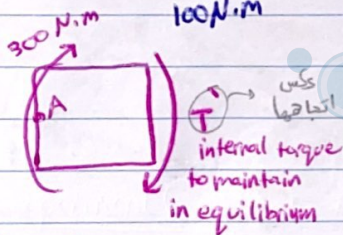 300 N.m
100 N.m
A
T
عكس
اتجاهها
internal torque
to maintain
in equilibrium